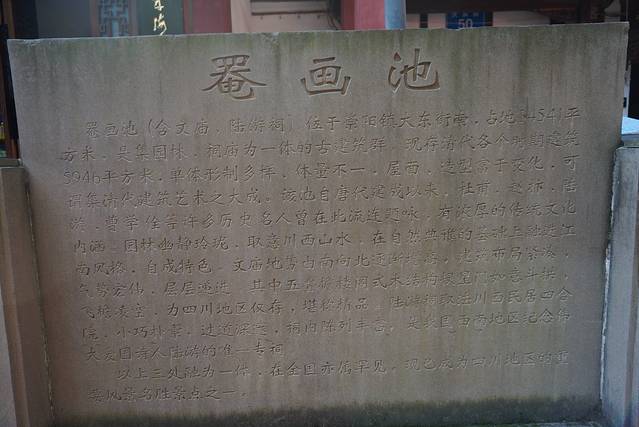 罨画池
罨画池(含文庙、陆游祠)位于崇阳镇大东街旁,占地34541平
方米,是集园林、祠庙为一体的古建筑群。现存清代各个时期建筑
5946平方米,单体形制多样,体量不一,屋面、造型富于变化,可
谓集清代建筑艺术之大成。该池自唐代建成以来,杜甫、赵抃、陆
游、曹学佺等许多历史名人曾在此流连题咏,有浓厚的传统文化
内涵。园林幽静玲珑,取意川西山水,在自然典雅的基础上融进江
南风格,自成特色。文庙地势由南向北逐渐增高,建筑布局紧凑,
气势宏伟,层层递进。其中五
飞檐凌空,为四川地区仅存,堪称精品。陆游祠取法川西民居四合
院,小巧朴素,过道深邃,祠内陈列丰富,是我国西南地区纪念伟
大爱国诗人陆游的唯一专祠。
以上三处融为一体,在全国亦属罕见。现已成为四川地区的重
要风景名胜景点之一。
50